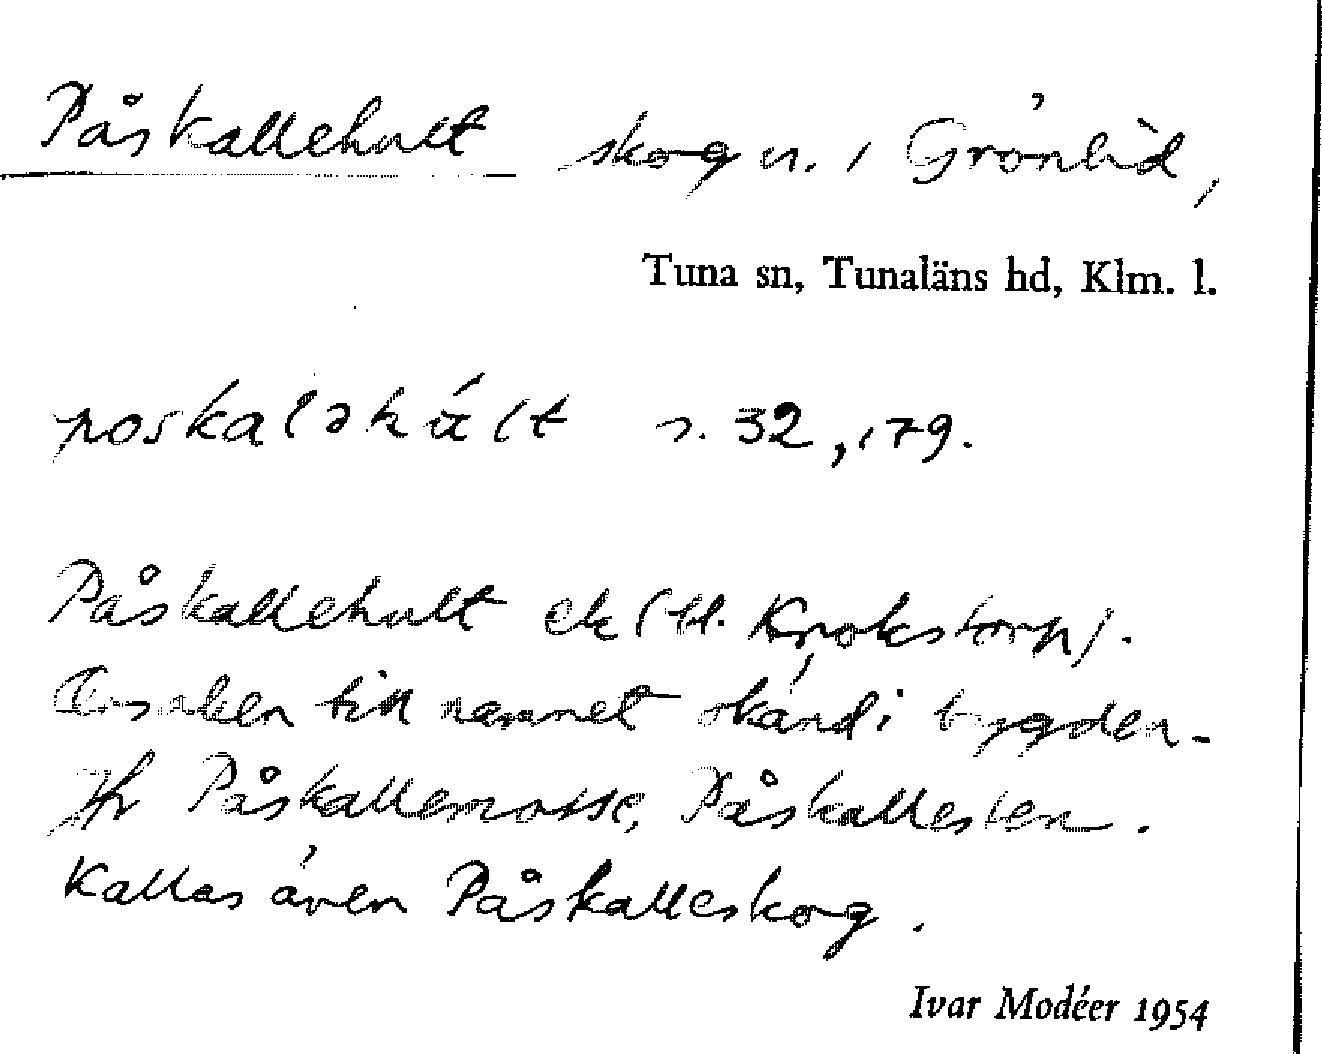 Påskallehult skog n. i Grönlid,
Tuna sn, Tunaläns hd, Klm. l.
poskaləhált s. 32, 179.
Påskallehult ek (tl. Krokstorp).
Orsaken till namnet okänd i bygden.
Jfr Påskallemosse, Påskallesten.
Kallas även Påskalleskog.
Ivar Modéer 1954